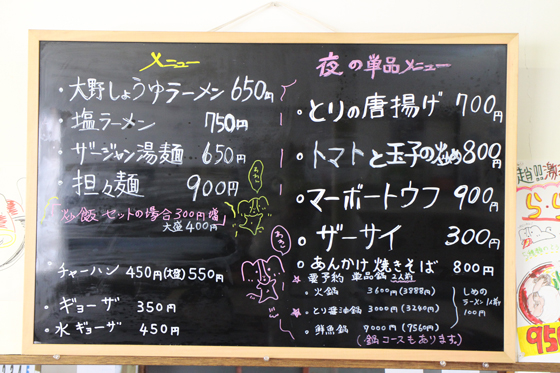 メニュー
・大野しょうゆラーメン 650円
・塩ラーメン 750円
・ザージャン湯麺 650円
・担々麺 900円
炒飯 セットの場合300円増
大盛400円
・チャーハン 450円(大盛)550円
・ギョーザ 350円
・水ギョーザ 450円
夜の単品メニュー
・とりの唐揚げ 700円
・トマトと玉子の炒め 800円
・マーボートウフ 900円
・ザーサイ 300円
・あんかけ焼きそば 800円
★要予約 単品鍋 2人前
・火鍋 3600円(3888円)
★・とり醤油鍋 3000円(3240円)
・鮮魚鍋 9000円(9560円)
しめの
ラーメン1杯
100円
(鍋コースもあります。)
超!!激
950